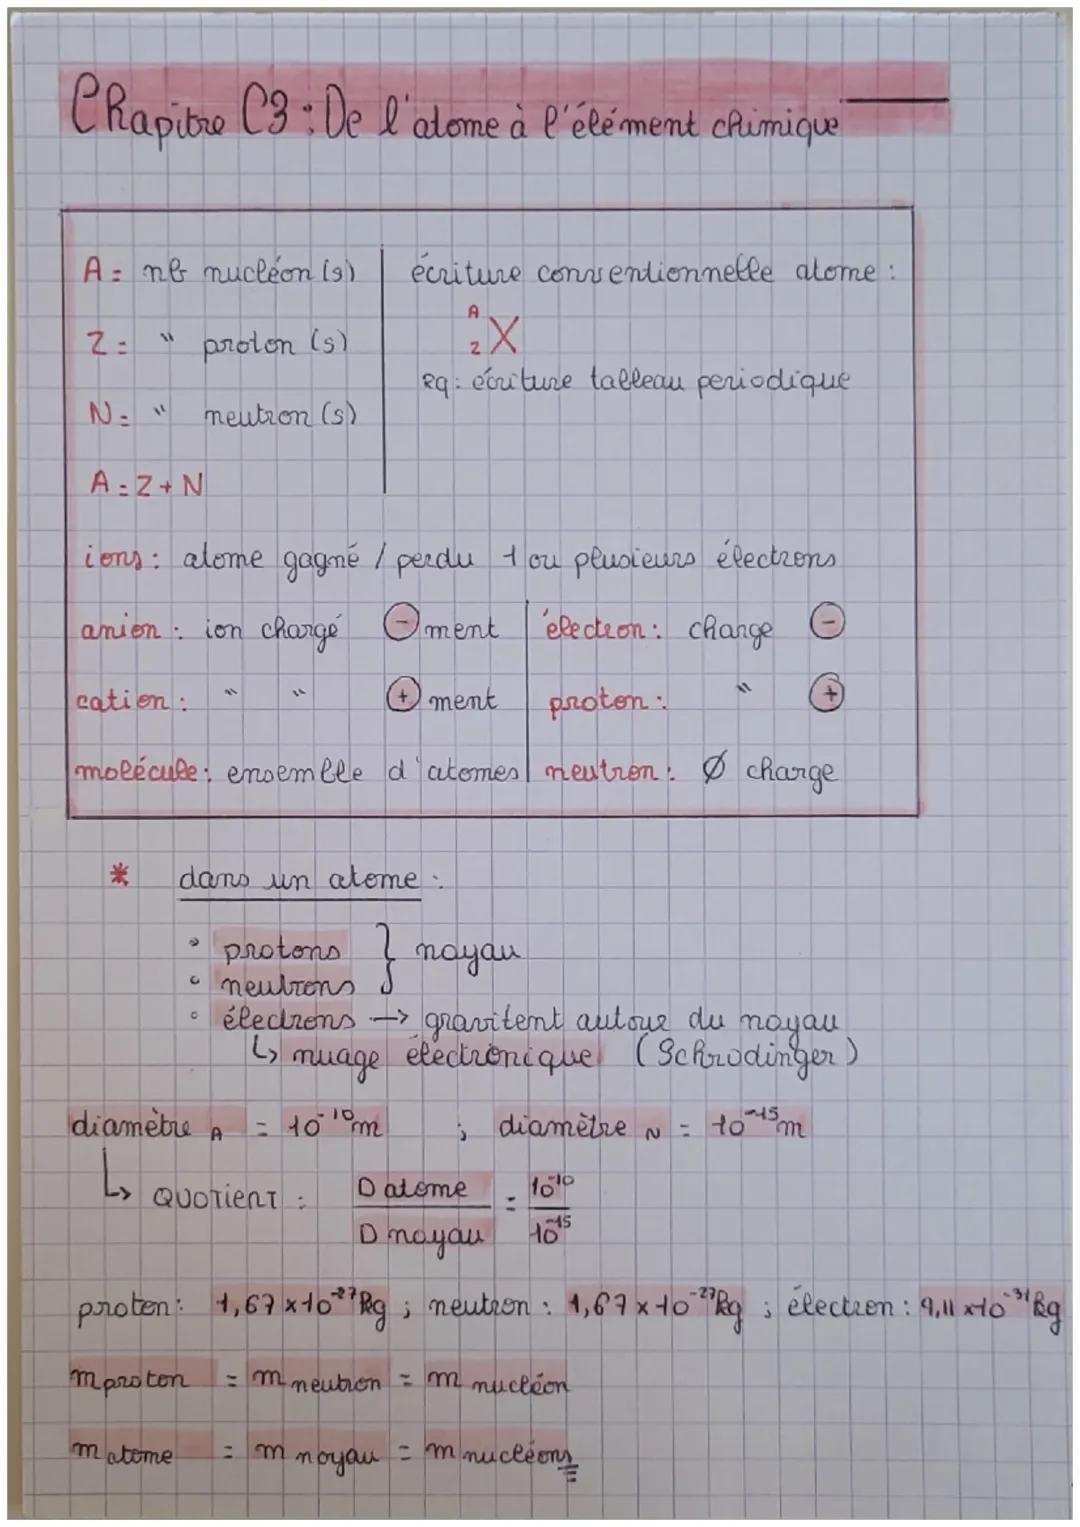 Chapitre C3 : De l'atome à l'élément chimique
A = nb nucléon(s)
Z = " proton(s)
N = " neutron(s)
A = Z + N
écriture conventionnelle atome :
A
Z X
eq : écriture tableau periodique
ions : atome gagné / perdu 1 ou plusieurs électrons
anion : ion chargé ⊖ ment
cation : " " ⊕ ment
molécule : ensemble d'atomes
électron : charge ⊖
proton : " ⊕
neutron : Ø charge
* dans un atome :
° protons } noyau
° neutrons
° électrons → gravitent autour du noyau
↳ nuage électronique (Schrodinger)
diamètre A = 10⁻¹⁰m ; diamètre N = 10⁻¹⁵m
↳ QUOTIENT : D atome / D noyau = 10⁻¹⁰ / 10⁻¹⁵
proton : 1,67 x 10⁻²⁷kg ; neutron : 1,67 x 10⁻²⁷kg ; électron : 9,11 x 10⁻³¹kg
m proton = m neutron = m nucléon
m atome = m noyau = m nucléons